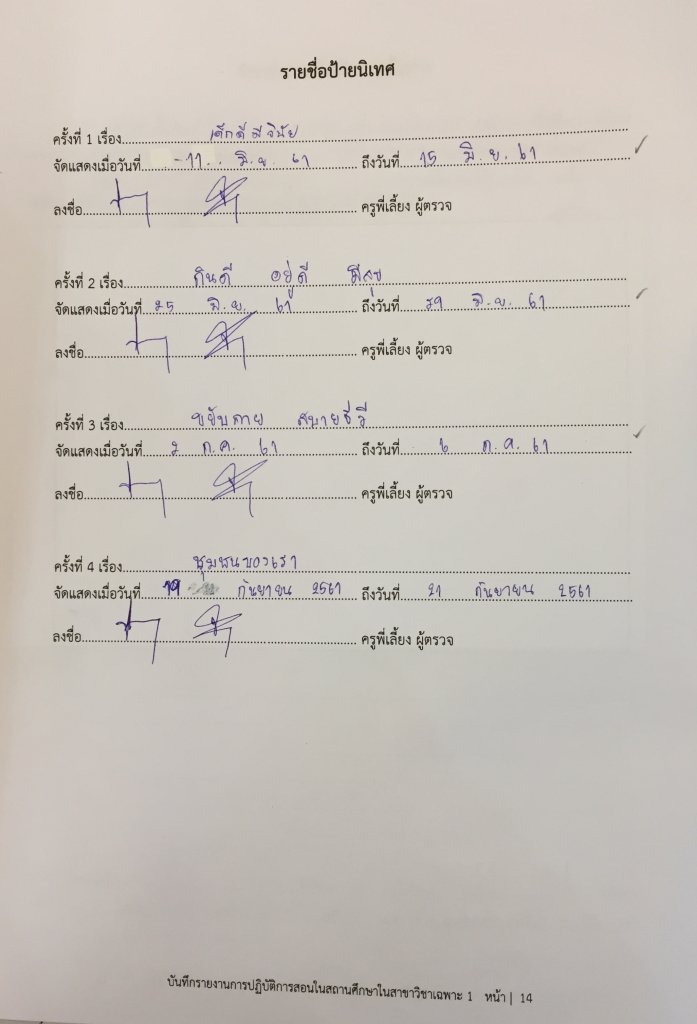 รายชื่อป้ายนิเทศ
ครั้งที่ 1 เรื่อง เด็กดีมีวินัย
จัดแสดงเมื่อวันที่ 11 มิ.ย. 61 ถึงวันที่ 15 มิ.ย. 61
ลงชื่อ ครูพี่เลี้ยง ผู้ตรวจ
ครั้งที่ 2 เรื่อง กินดี อยู่ดี มีสุข
จัดแสดงเมื่อวันที่ 25 มิ.ย. 61 ถึงวันที่ 29 มิ.ย. 61
ลงชื่อ ครูพี่เลี้ยง ผู้ตรวจ
ครั้งที่ 3 เรื่อง ขยับกาย สบายชีวี
จัดแสดงเมื่อวันที่ 2 ก.ค. 61 ถึงวันที่ 6 ก.ค. 61
ลงชื่อ ครูพี่เลี้ยง ผู้ตรวจ
ครั้งที่ 4 เรื่อง ชุมชนของเรา
จัดแสดงเมื่อวันที่ 19 กันยายน 2561 ถึงวันที่ 21 กันยายน 2561
ลงชื่อ ครูพี่เลี้ยง ผู้ตรวจ
บันทึกรายงานการปฏิบัติการสอนในสถานศึกษาในสาขาวิชาเฉพาะ 1 หน้า | 14